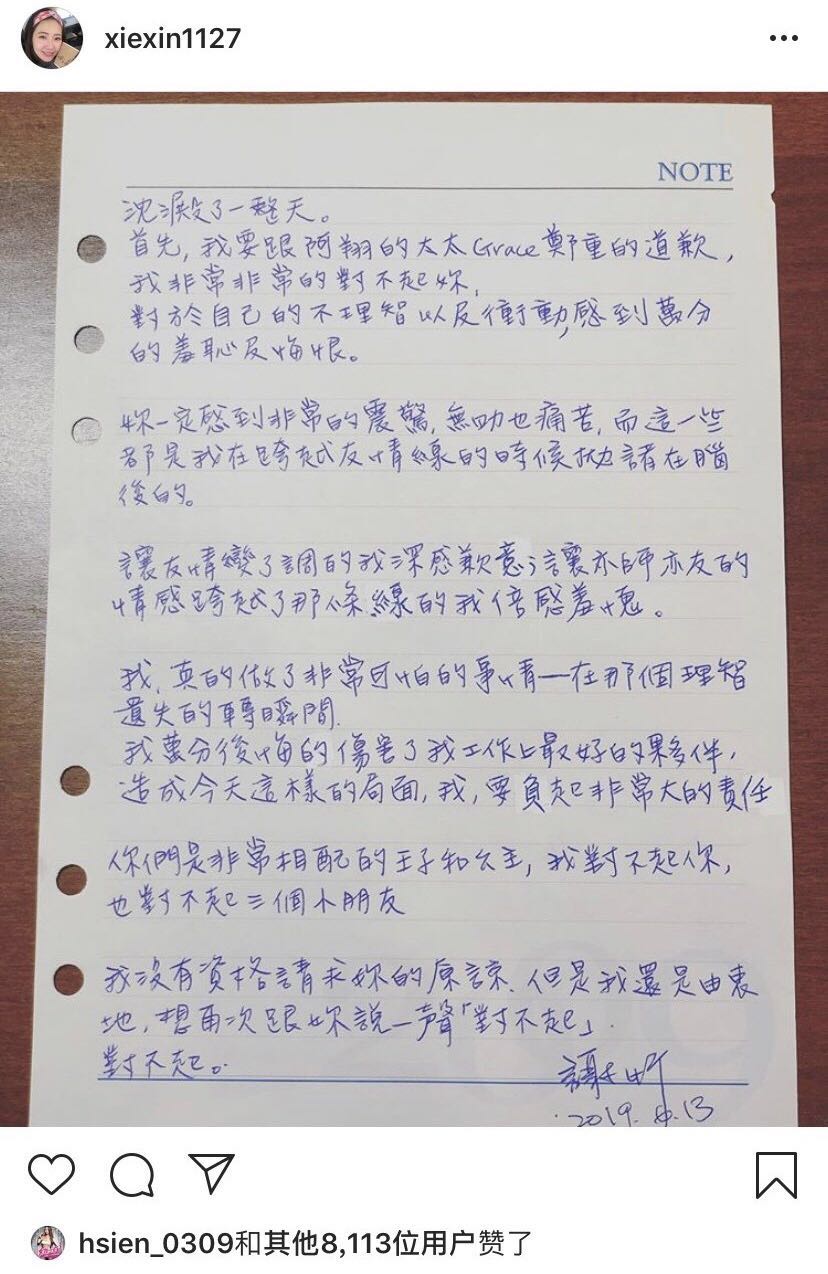 xiexin1127
NOTE
沈澱了一整天。
首先,我要跟阿翔的太太Grace鄭重的道歉,
我非常非常的對不起妳,
對於自己的不理智以及衝動,感到萬分
的羞恥及悔恨。
妳一定感到非常的震驚,無助也痛苦,而這一些
都是我在跨越友情線的時候拋諸在腦
後的。
讓友情變了調的我深感歉意;讓亦師亦友的
情感跨越了那條線的我倍感羞愧。
我,真的做了非常可怕的事情—在那個理智
遺失的轉瞬間.
我萬分後悔的傷害了我工作上最好的夥伴,
造成今天這樣的局面,我,要負起非常大的責任
你們是非常相配的王子和公主,我對不起你,
也對不起三個小朋友
我沒有資格請求妳的原諒.但是我還是由衷
地,想再次跟妳說一聲「對不起」.
對不起。
2019.6.13
hsien_0309和其他8,113位用户赞了